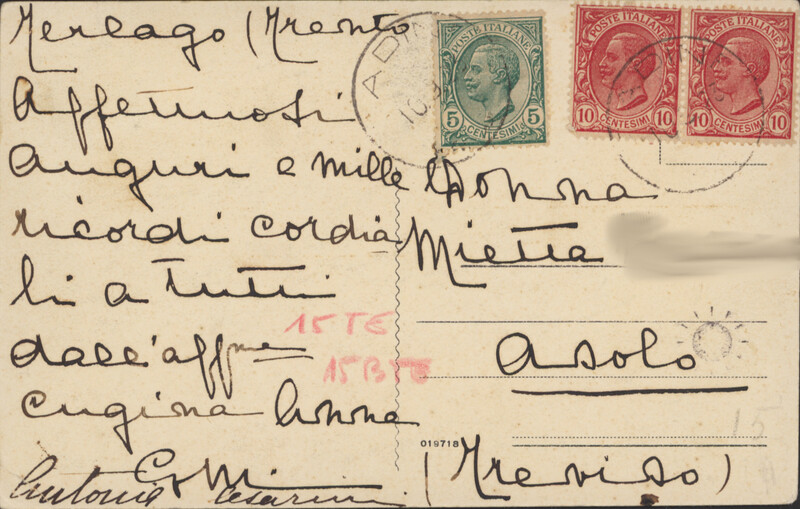 Terlago (Trento
Affettuosi
auguri e mille
ricordi cordia
li a tutti
dall'affma
cugina Anna
Antonio Cesarini
POSTE ITALIANE
5 5
CENTESIMI
POSTE ITALIANE
10 10
CENTESIMI
POSTE ITALIANE
10 10
CENTESIMI
Donna
Mietta
Asolo
(Treviso)
15TE
15BTE
019718
15